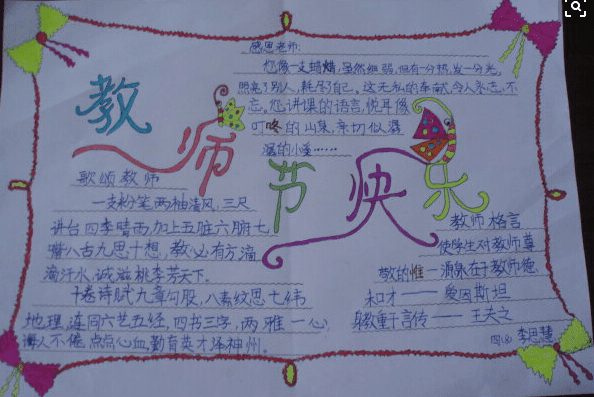 教师节快乐
感恩老师:
您像一支蜡烛,虽然细弱,但有一分热,发一分光,
照亮了别人,耗尽了自己。这无私的奉献,令人永志不
忘。您讲课的语言,悦耳像
叮咚的山泉,亲切似潺
潺的小溪……
歌颂教师
一支粉笔两袖清风,三尺
讲台四季晴雨,加上五脏六腑七
嘴八舌九思十想,教必有方滴
滴汗水,诚滋桃李芳天下。
十卷诗赋九章勾股,八索纹思七纬
地理,连同六艺五经,四书三字,两雅一心
诲人不倦,点点心血,勤育英才泽神州。
教师格言
使学生对教师尊
敬的惟一源泉在于教师德
和才——爱因斯坦
身教重于言传——王夫之
李思慧